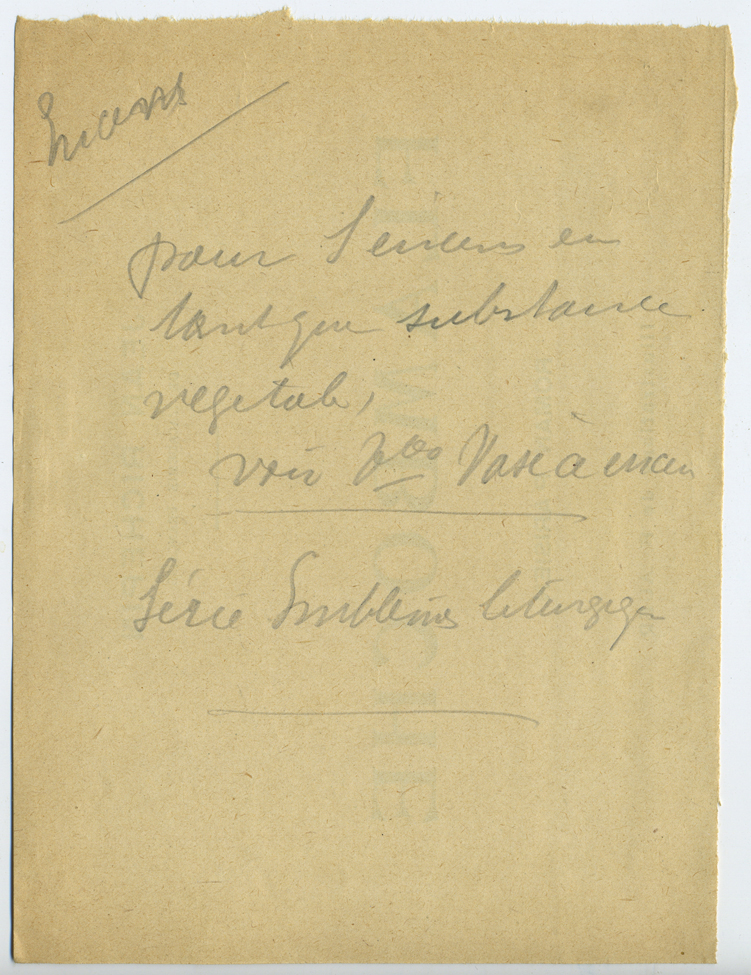 Encens
pour l'encens en
tant que substance
vegetale,
voir Vase à encen
Série Emblèmes liturgiq